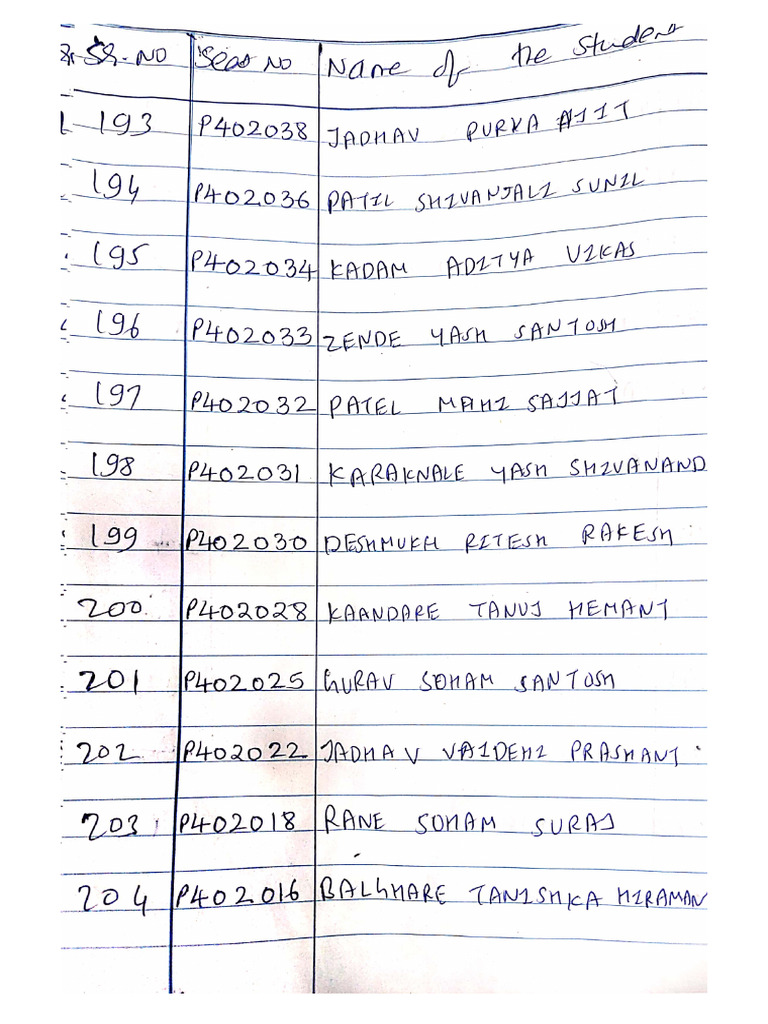 Sr. NO Seat NO Name of the Student
193 P402038 JADHAV PURVA AJIT
194 P402036 PATIL SHIVANJALI SUNIL
195 P402034 KADAM ADITYA VIKAS
196 P402033 ZENDE YASH SANTOSH
197 P402032 PATEL MAHI SAJJAT
198 P402031 KARAKNALE YASH SHIVANAND
199 P402030 DESHMUKH RITESH RAKESH
200 P402028 KAANDARE TANUJ HEMANT
201 P402025 GURAV SOHAM SANTOSH
202 P402022 JADHAV VAIDEHI PRASHANT
203 P402018 RANE SOHAM SURAJ
204 P402016 BALGHARE TANISHKA HIRAMAN